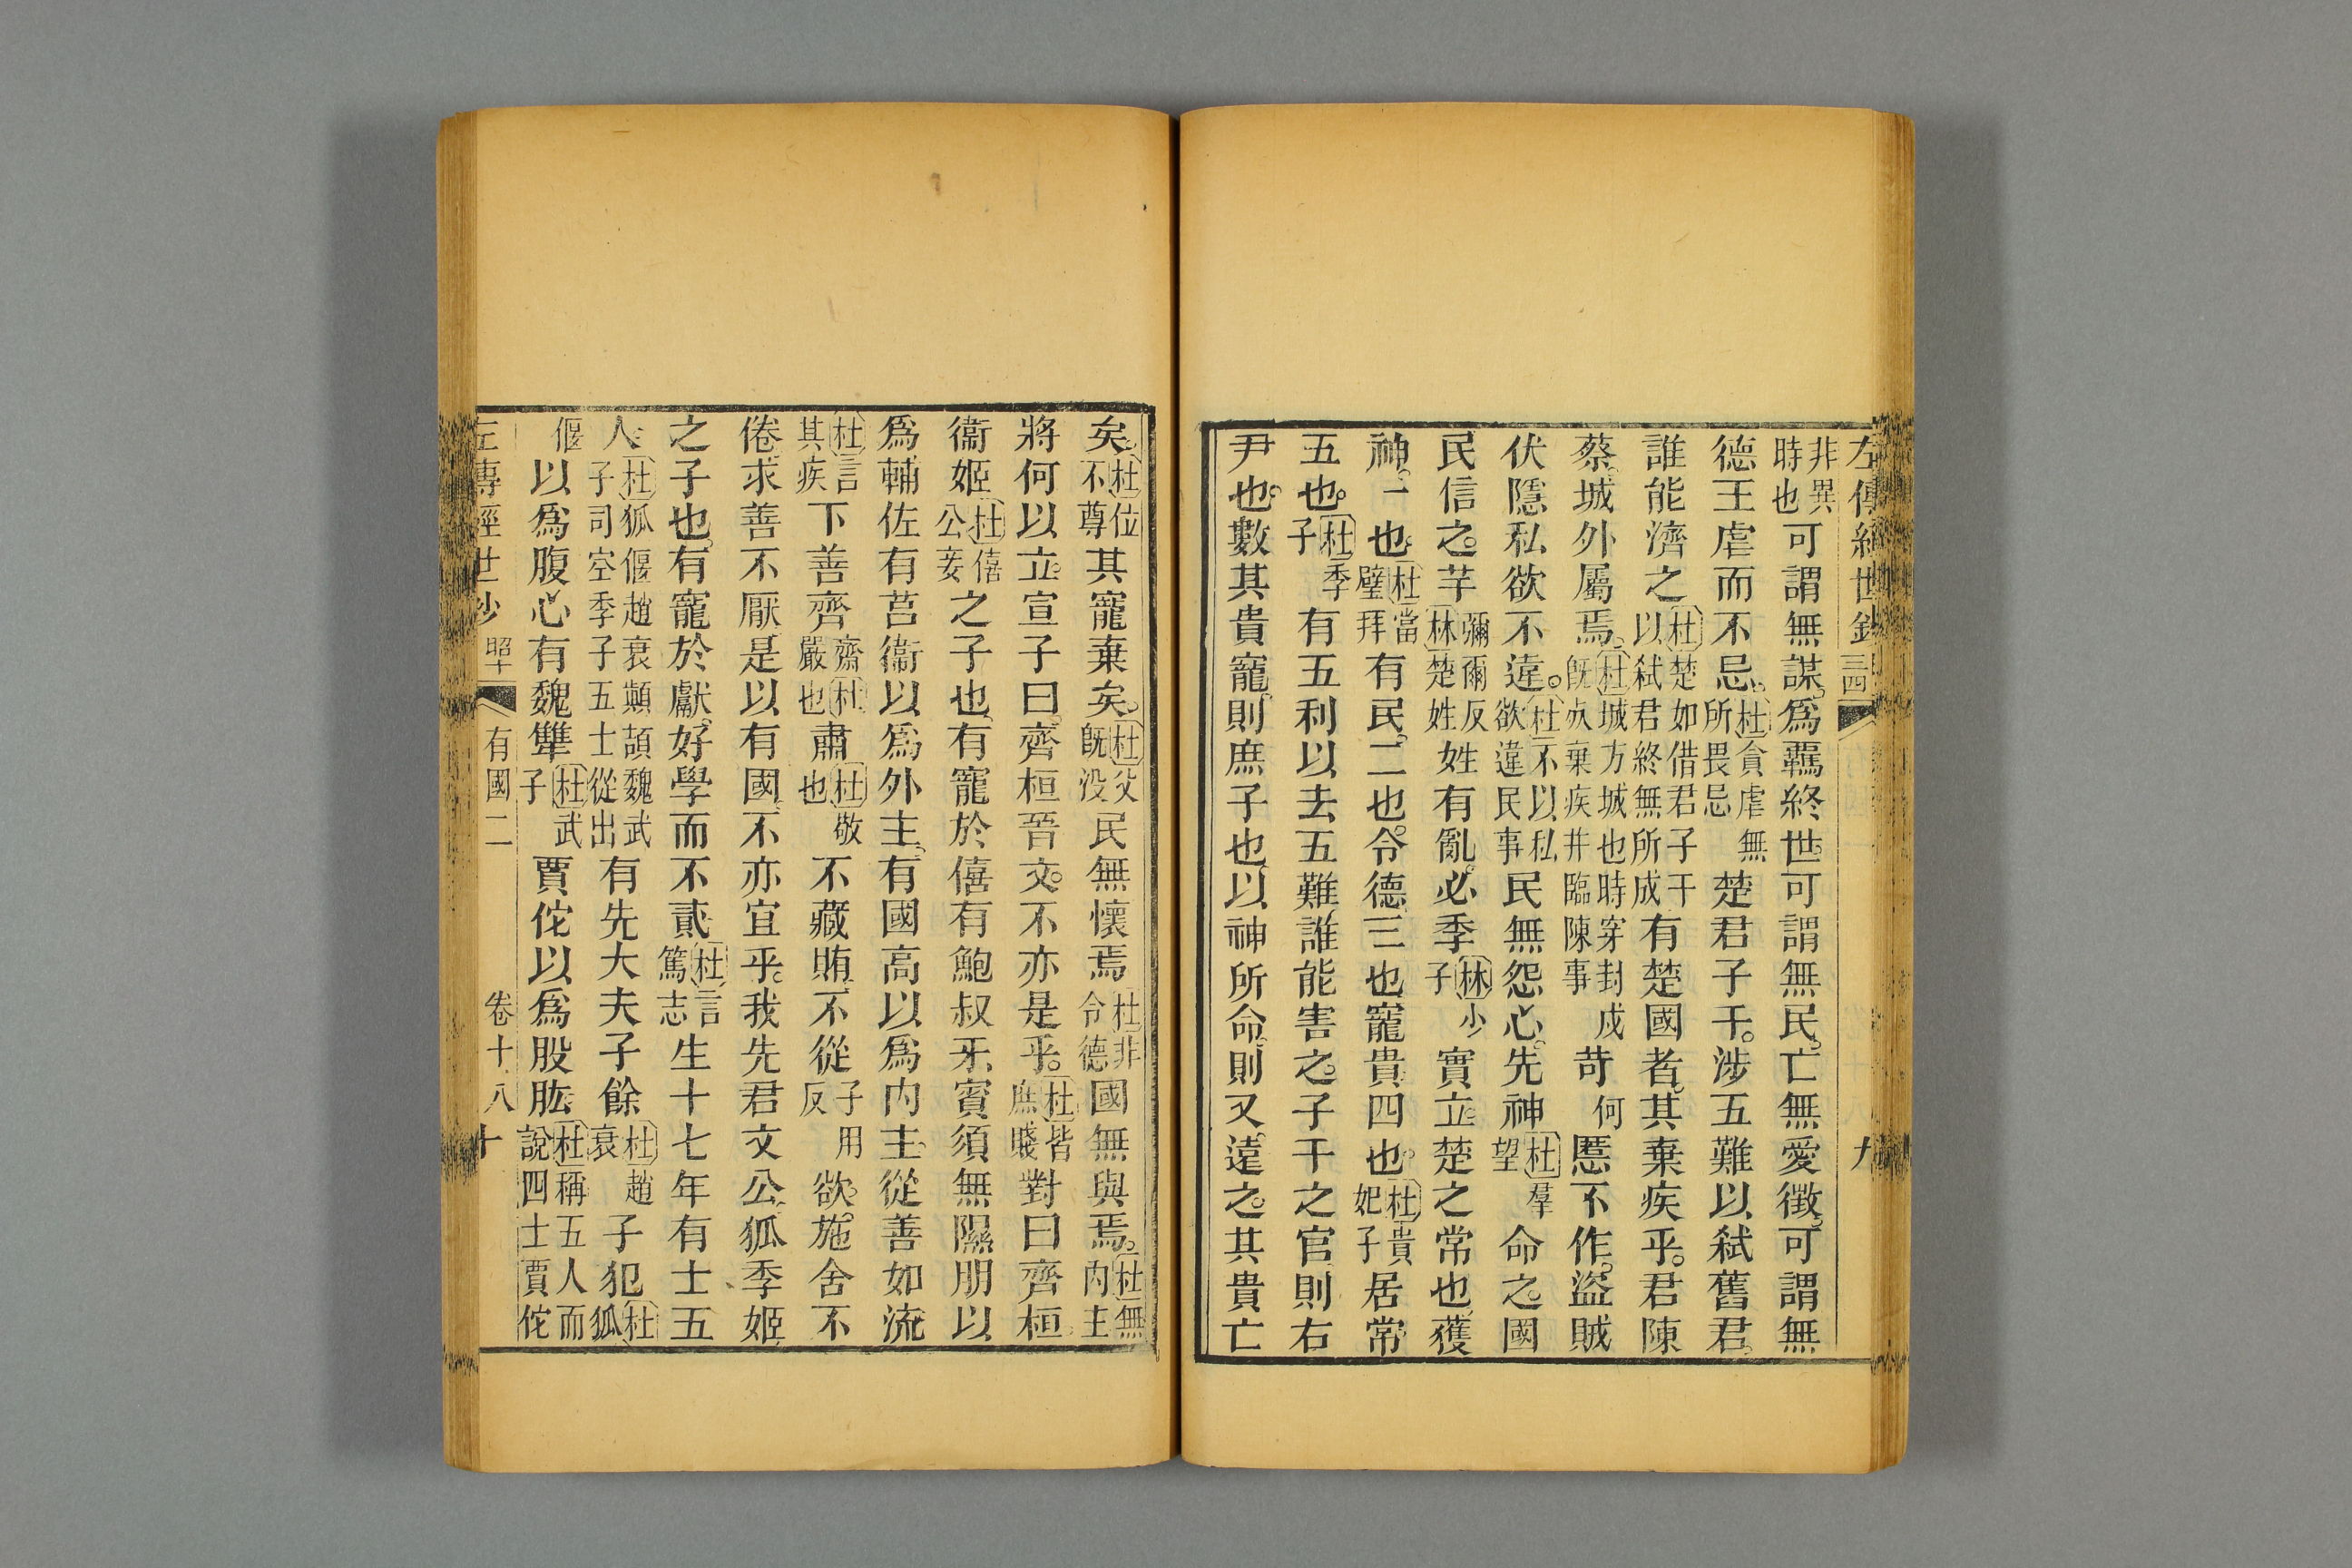 左傳經世鈔 三四 九
非異時也可謂無謀。爲羈終世可謂無民。亡無愛徵。可謂無
德王虐而不忌。杜貪虐無所畏忌楚君子干。涉五難以弒舊君。
誰能濟之杜楚如借君子干以弒君終無所成有楚國者。其棄疾乎。君陳
蔡。城外屬焉。杜城方城也時穿封戍既死棄疾幷臨陳事苛何慝不作。盜賊
伏隱私欲不違。杜不以私欲違民事民無怨心。先神杜羣望命之。國
民信之。芊彌爾反林楚姓姓有亂。必季林少子實立。楚之常也。獲
神。一也。杜當璧拜有民。二也。令德。三也寵貴四也。杜貴妃子居常
五也。杜季子有五利以去五難誰能害之。子干之官則右
尹也。數其貴寵。則庶子也。以神所命。則又遠之。其貴亡
矣。杜位不尊其寵棄矣。杜父既没民無懷焉杜非令德國無與焉。杜無内主
將何以立。宣子曰。齊桓晉文。不亦是乎。杜皆庶賤對曰齊桓
衞姬杜僖公妾之子也。有寵於僖有鮑叔牙賓須無隰朋以
爲輔佐有莒衞以爲外主。有國高以爲内主。從善如流
杜言其疾下善齊齋杜嚴也肅杜敬也不藏賄。不從子用反欲。施舍不
倦。求善不厭。是以有國。不亦宜乎。我先君文公。狐季姬
之子也。有寵於獻。好學而不貳杜言篤志生十七年有士五
人。杜狐偃趙衰顛頡魏武子司空季子五士從出有先大夫子餘杜趙衰子犯杜狐
偃以爲腹心有魏犨杜武子賈佗以爲股肱。杜稱五人而說四士賈佗
左傳經世鈔 昭十 有國二 卷十八 十